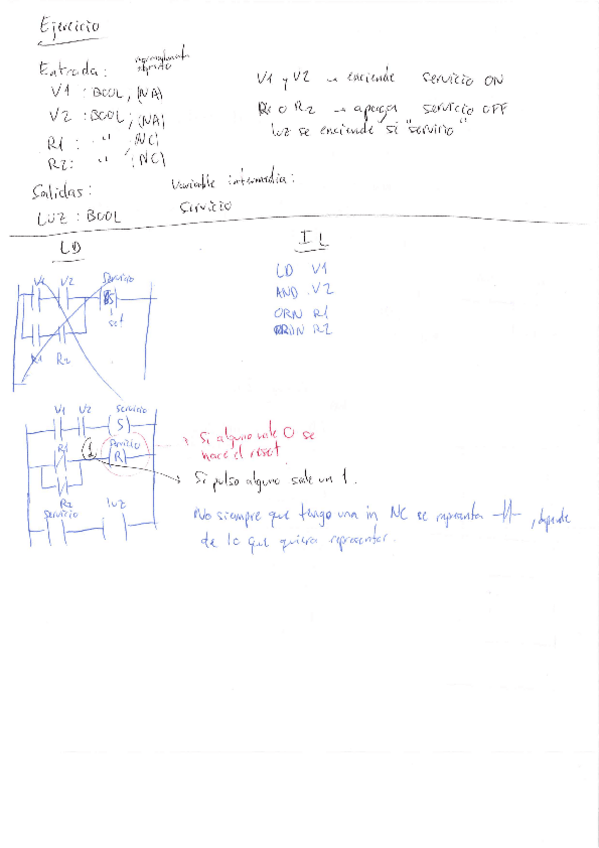 Ejercicio
Entrada: normalmente abierto
V1 : BOOL, (NA)
V2 : BOOL, (NA)
R1 : " (NC)
R2: " (NC)
V1 y V2 → enciende servicio ON
R1 o R2 → apaga servicio OFF
luz se enciende si "servicio"
Salidas:
LUZ : BOOL
Variable intermedia:
Servicio
LD
V1 V2 Servicio
S
set
R1 R2
IL
LD V1
AND V2
ORN R1
R2
V1 V2 Servicio
S
R1 1 Servicio
R
R2
Servicio luz
Si alguno vale 0 se
hace el reset
Si pulso alguno sale un 1.
No siempre que tengo una in NC se representa , depende
de lo que quiera representar.